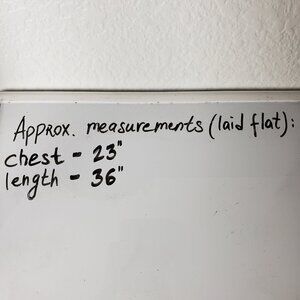 Approx. measurements (laid flat):
chest - 23"
length - 36"